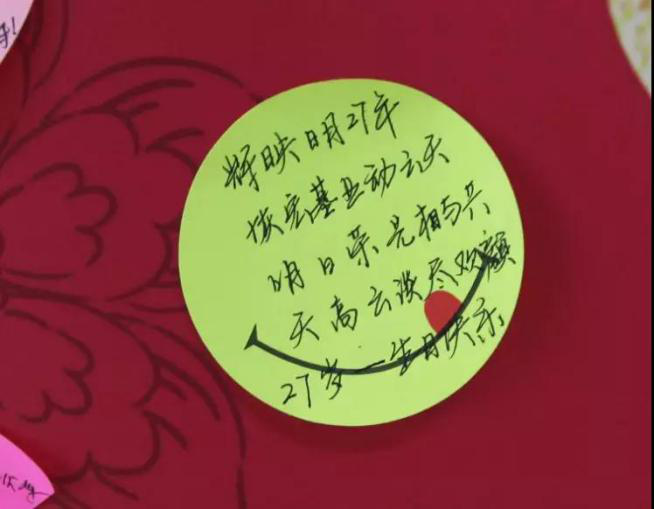 辉映明月27年
宏基业动云天
明日荣光相与共
天高云淡尽欢颜
27岁一生日快乐